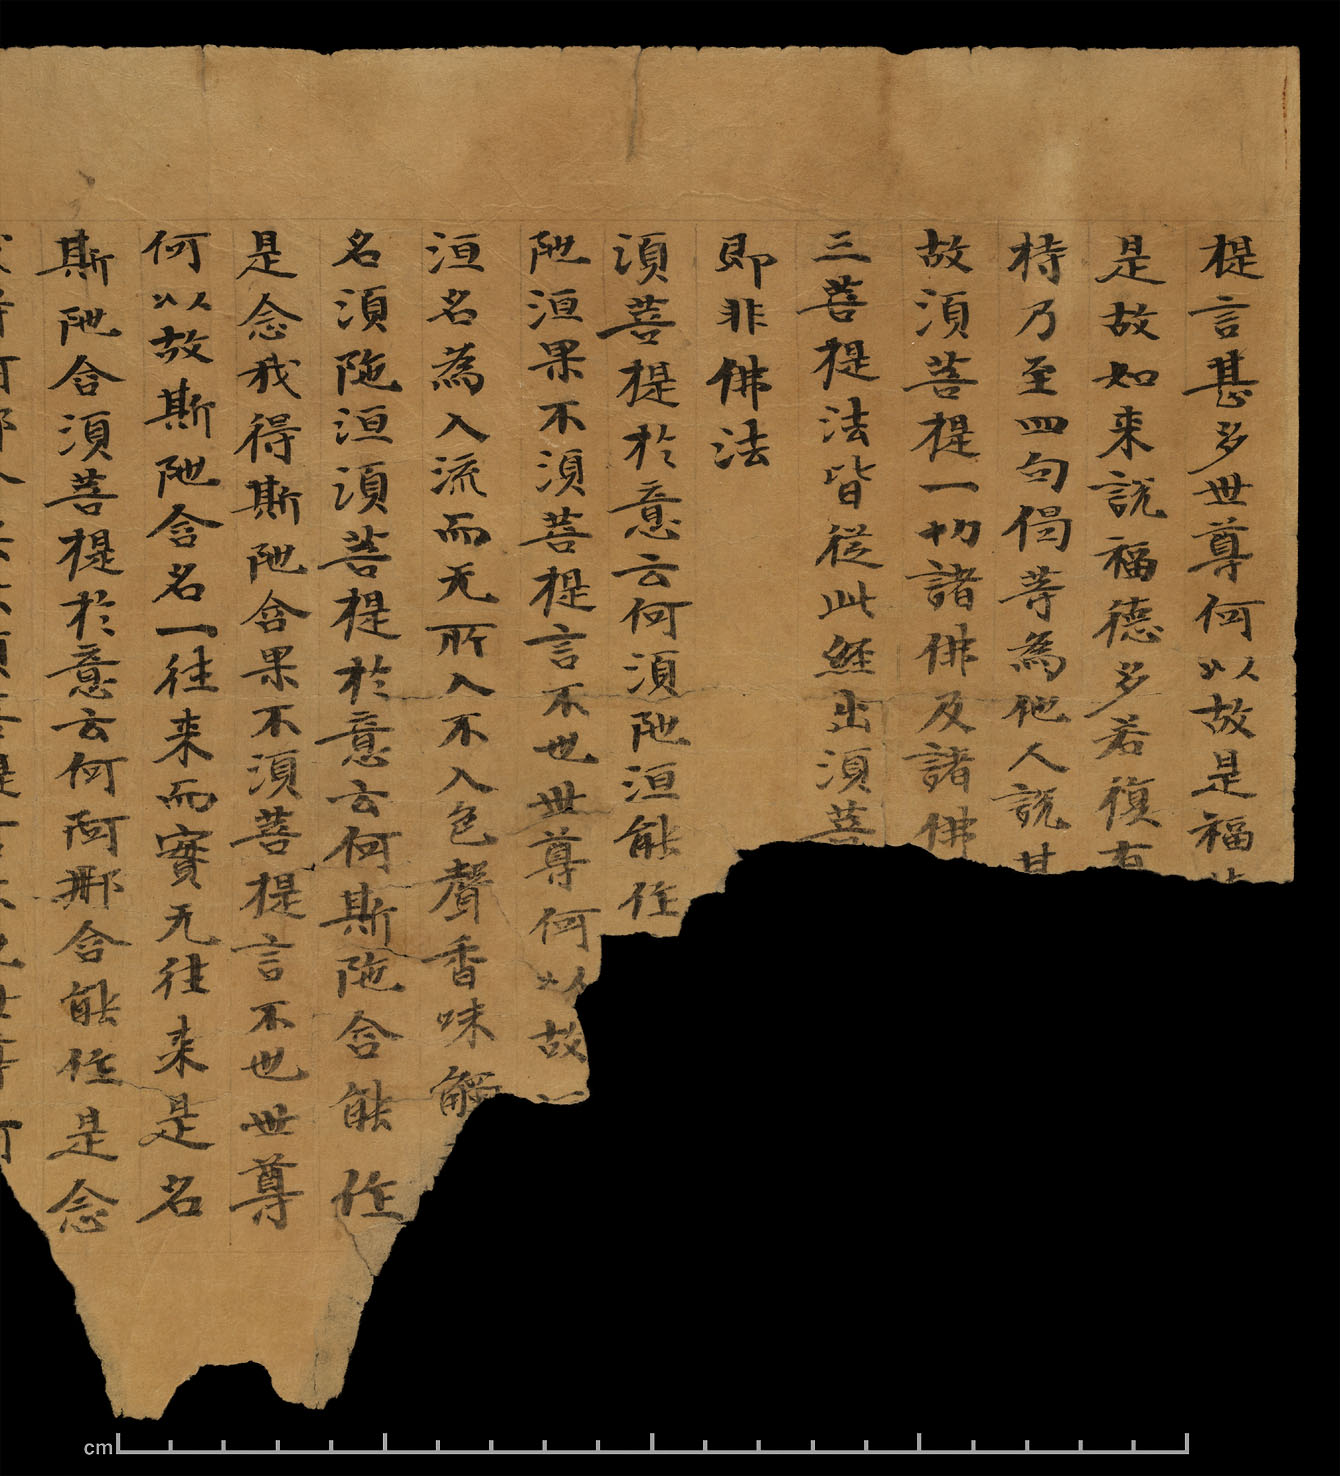 提言甚多世尊何以故是福
是故如来說福德多若復有
持乃至四句偈等為他人說其
故須菩提一切諸佛及諸佛
三菩提法皆從此經出須菩
即非佛法
須菩提於意云何須陁洹能作
陁洹果不須菩提言不也世尊何以故
洹名為入流而无所入不入色聲香味觸
名須陁洹須菩提於意云何斯陁含能作
是念我得斯陁含果不須菩提言不也世尊
何以故斯陁含名一往来而實无往来是名
斯陁含須菩提於意云何阿那含能作是念
cm